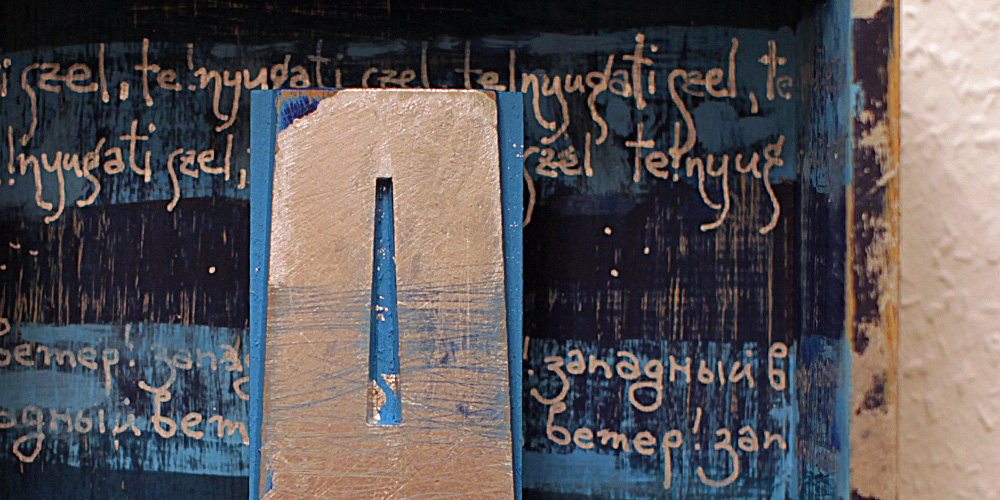 i szel, te!nyugati szel te!nyugati szel, te
!nyugati szel, szel te!nyug
ветер! запад ! западный в
адный вет ветер! зап